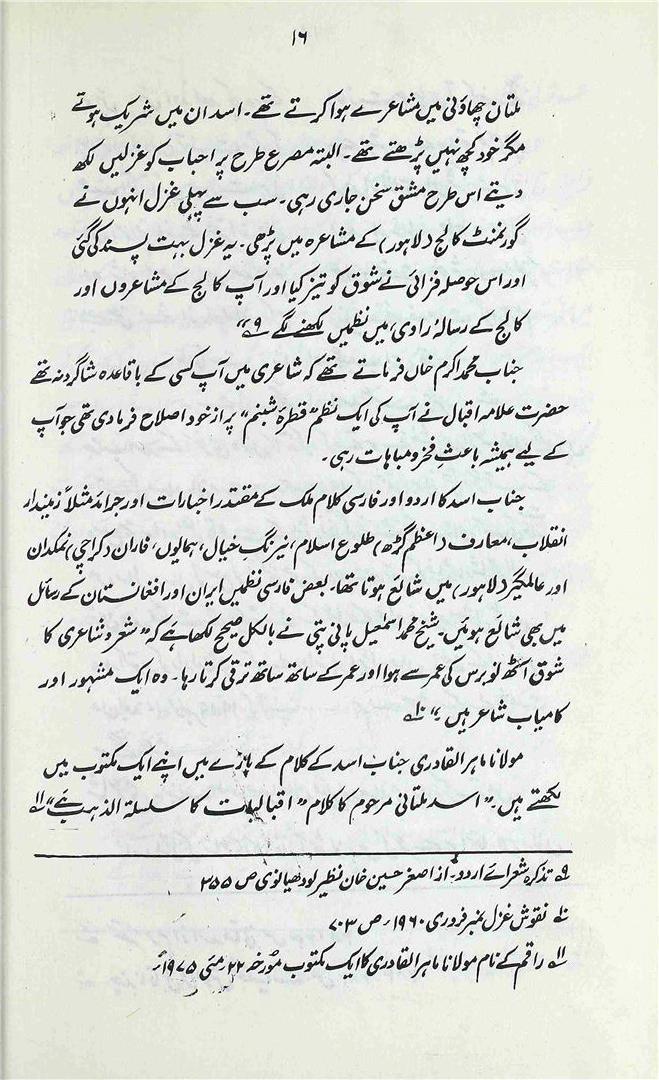 ۱۶
ملتان چھاؤنی میں مشاعرے ہوا کرتے تھے۔ اسد ان میں شریک ہوتے
مگر خود کچھ نہیں پڑھتے تھے۔ البتہ مصرع طرح پر احباب کو غزلیں لکھ
دیتے اس طرح مشق سخن جاری رہی۔ سب سے پہلی غزل انہوں نے
گورنمنٹ کالج (لاہور) کے مشاعرہ میں پڑھی۔ یہ غزل بہت پسند کی گئی
اور اس حوصلہ فزائی نے شوق کو تیز کیا اور آپ کالج کے مشاعروں اور
کالج کے رسالہ راوی میں نظمیں لکھنے لگے ۹؎"
جناب محمد اکرم خاں فرماتے تھے کہ شاعری میں آپ کسی کے باقاعدہ شاگرد نہ تھے
حضرت علامہ اقبال نے آپ کی ایک نظم "قطرۂ شبنم" پر از خود اصلاح فرما دی تھی جو آپ
کے لیے ہمیشہ باعثِ فخر و مباہات رہی۔
جناب اسد کا اردو اور فارسی کلام ملک کے مقتدر اخبارات اور جرائد مثلاً زمیندار
انقلاب، معارف (اعظم گڑھ) طلوع اسلام، نیرنگِ خیال، ہمایوں، فاران (کراچی) نمکدان
اور عالمگیر (لاہور) میں شائع ہوتا تھا۔ بعض فارسی نظمیں ایران اور افغانستان کے رسائل
میں بھی شائع ہوئیں۔ شیخ محمد اسمٰعیل پانی پتی نے بالکل صحیح لکھا ہے کہ "شعر و شاعری کا
شوق آٹھ نو برس کی عمر سے ہوا اور عمر کے ساتھ ساتھ ترقی کرتا رہا۔ وہ ایک مشہور اور
کامیاب شاعر ہیں۔" ۱۰؎
مولانا ماہر القادری جناب اسد کے کلام کے بارے میں اپنے ایک مکتوب میں
لکھتے ہیں۔ "اسد ملتانی مرحوم کا کلام" اقبالیات کا سلسلۃ الذہب ہے" ۱۱؎
۹؎ تذکرہ شعرائے اردو۔ از اصغر حسین خان نظیر لودھیانوی ص ۳۵۵
۱۰؎ نقوش غزل نمبر فروری ۱۹۶۰ء ص ۷۰۳
۱۱؎ راقم کے نام مولانا ماہر القادری کا ایک مکتوب مورخہ ۲۲؍ مئی ۱۹۷۵ء